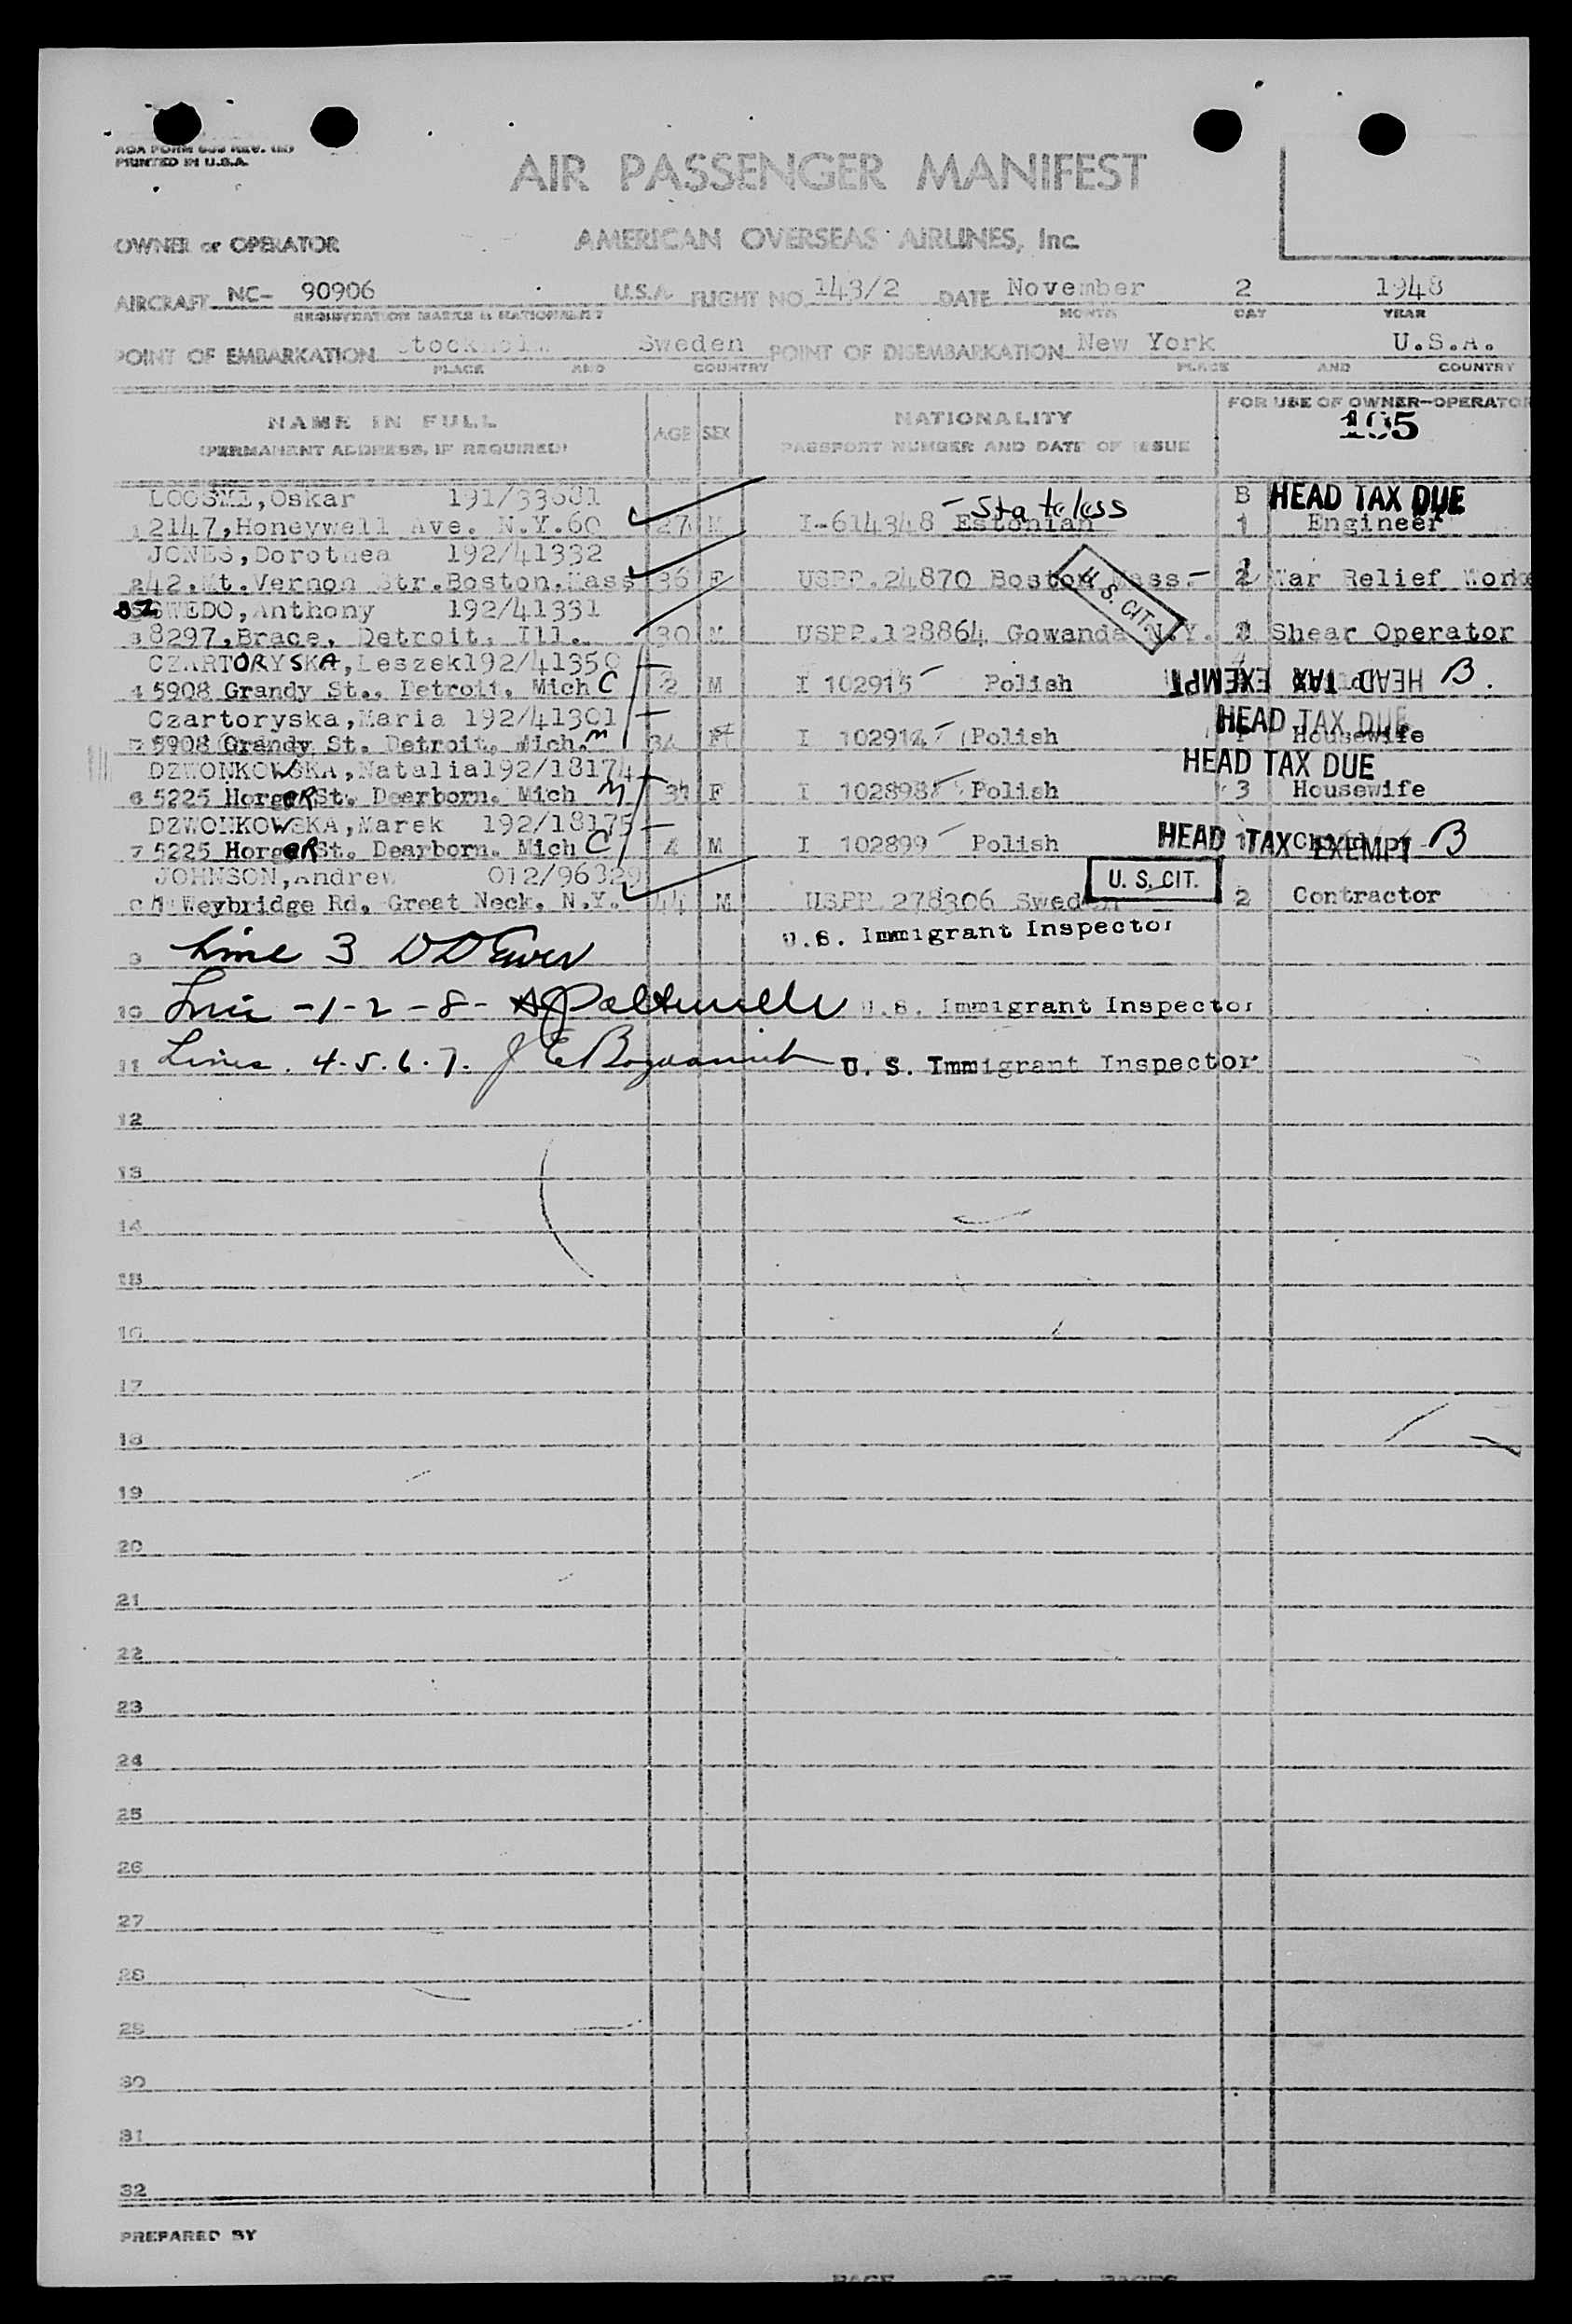 PRINTED IN U.S.A.
AIR PASSENGER MANIFEST
OWNER or OPERATOR AMERICAN OVERSEAS AIRLINES, Inc.
AIRCRAFT NC- 90906 U.S.A. FLIGHT NO. 143/2 DATE November 2 1948
REGISTRATION MARKS & NATIONALITY MONTH DAY YEAR
POINT OF EMBARKATION Stockholm Sweden POINT OF DISEMBARKATION New York U.S.A.
PLACE AND COUNTRY PLACE AND COUNTRY
FOR USE OF OWNER-OPERATOR
NAME IN FULL AGE SEX NATIONALITY 105
(PERMANENT ADDRESS, IF REQUIRED) PASSPORT NUMBER AND DATE OF ISSUE
Oskar - Stateless B HEAD TAX DUE
1 2147, Honeywell Ave. N.Y.60 27 M I-614348 Estonian 1 Engineer
JONES, Dorothea 192/41332
2 42, Mt. Vernon Str. Boston. Mass 36 F USPP. 24870 Boston Mass. - 2 War Relief Worke
U. S. CIT.
Anthony 192/41331
3 8297, Brace, Detroit, Ill. 30 M USPP. 128864 Gowanda N.Y. Shear Operator
CZARTORYSKA, Leszek 192/41350
4 5908 Grandy St., Detroit, Mich C 2 M I 102915 Polish HEAD TAX EXEMPT B.
Czartoryska, Maria 192/41301 HEAD TAX DUE
5 5908 Grandy St. Detroit, Mich. m F I Polish Housewife
DZWONKOWSKA, Natalia 192/18174 HEAD TAX DUE
6 5225 HorgeR St. Dearborn. Mich M F I 102898 Polish 3 Housewife
DZWONKOWSKA, Marek 192/18175
7 5225 HorgeR St. Dearborn. Mich C 4 M I 102899 Polish HEAD TAX EXEMPT - B
JOHNSON, Andrew 012/96329 U. S. CIT.
Weybridge Rd, Great Neck, N.Y. 44 M USPP. 278306 Sweden 2 Contractor
9 Line 3 U.S. Immigrant Inspector
10 Line -1-2-8- U.S. Immigrant Inspector
11 Lines. 4.5.6.7. U. S. Immigrant Inspector
12
13
14
15
16
17
18
19
20
21
22
23
24
25
26
27
28
29
30
31
32
PREPARED BY